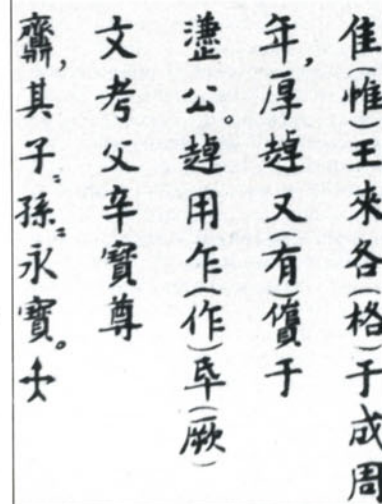 隹(惟)王來各(格)于成周
年,厚趠又(有)儥于
濂公。趠用乍(作)氒(厥)
文考父辛寶尊
齋,其子=孫=永寶。